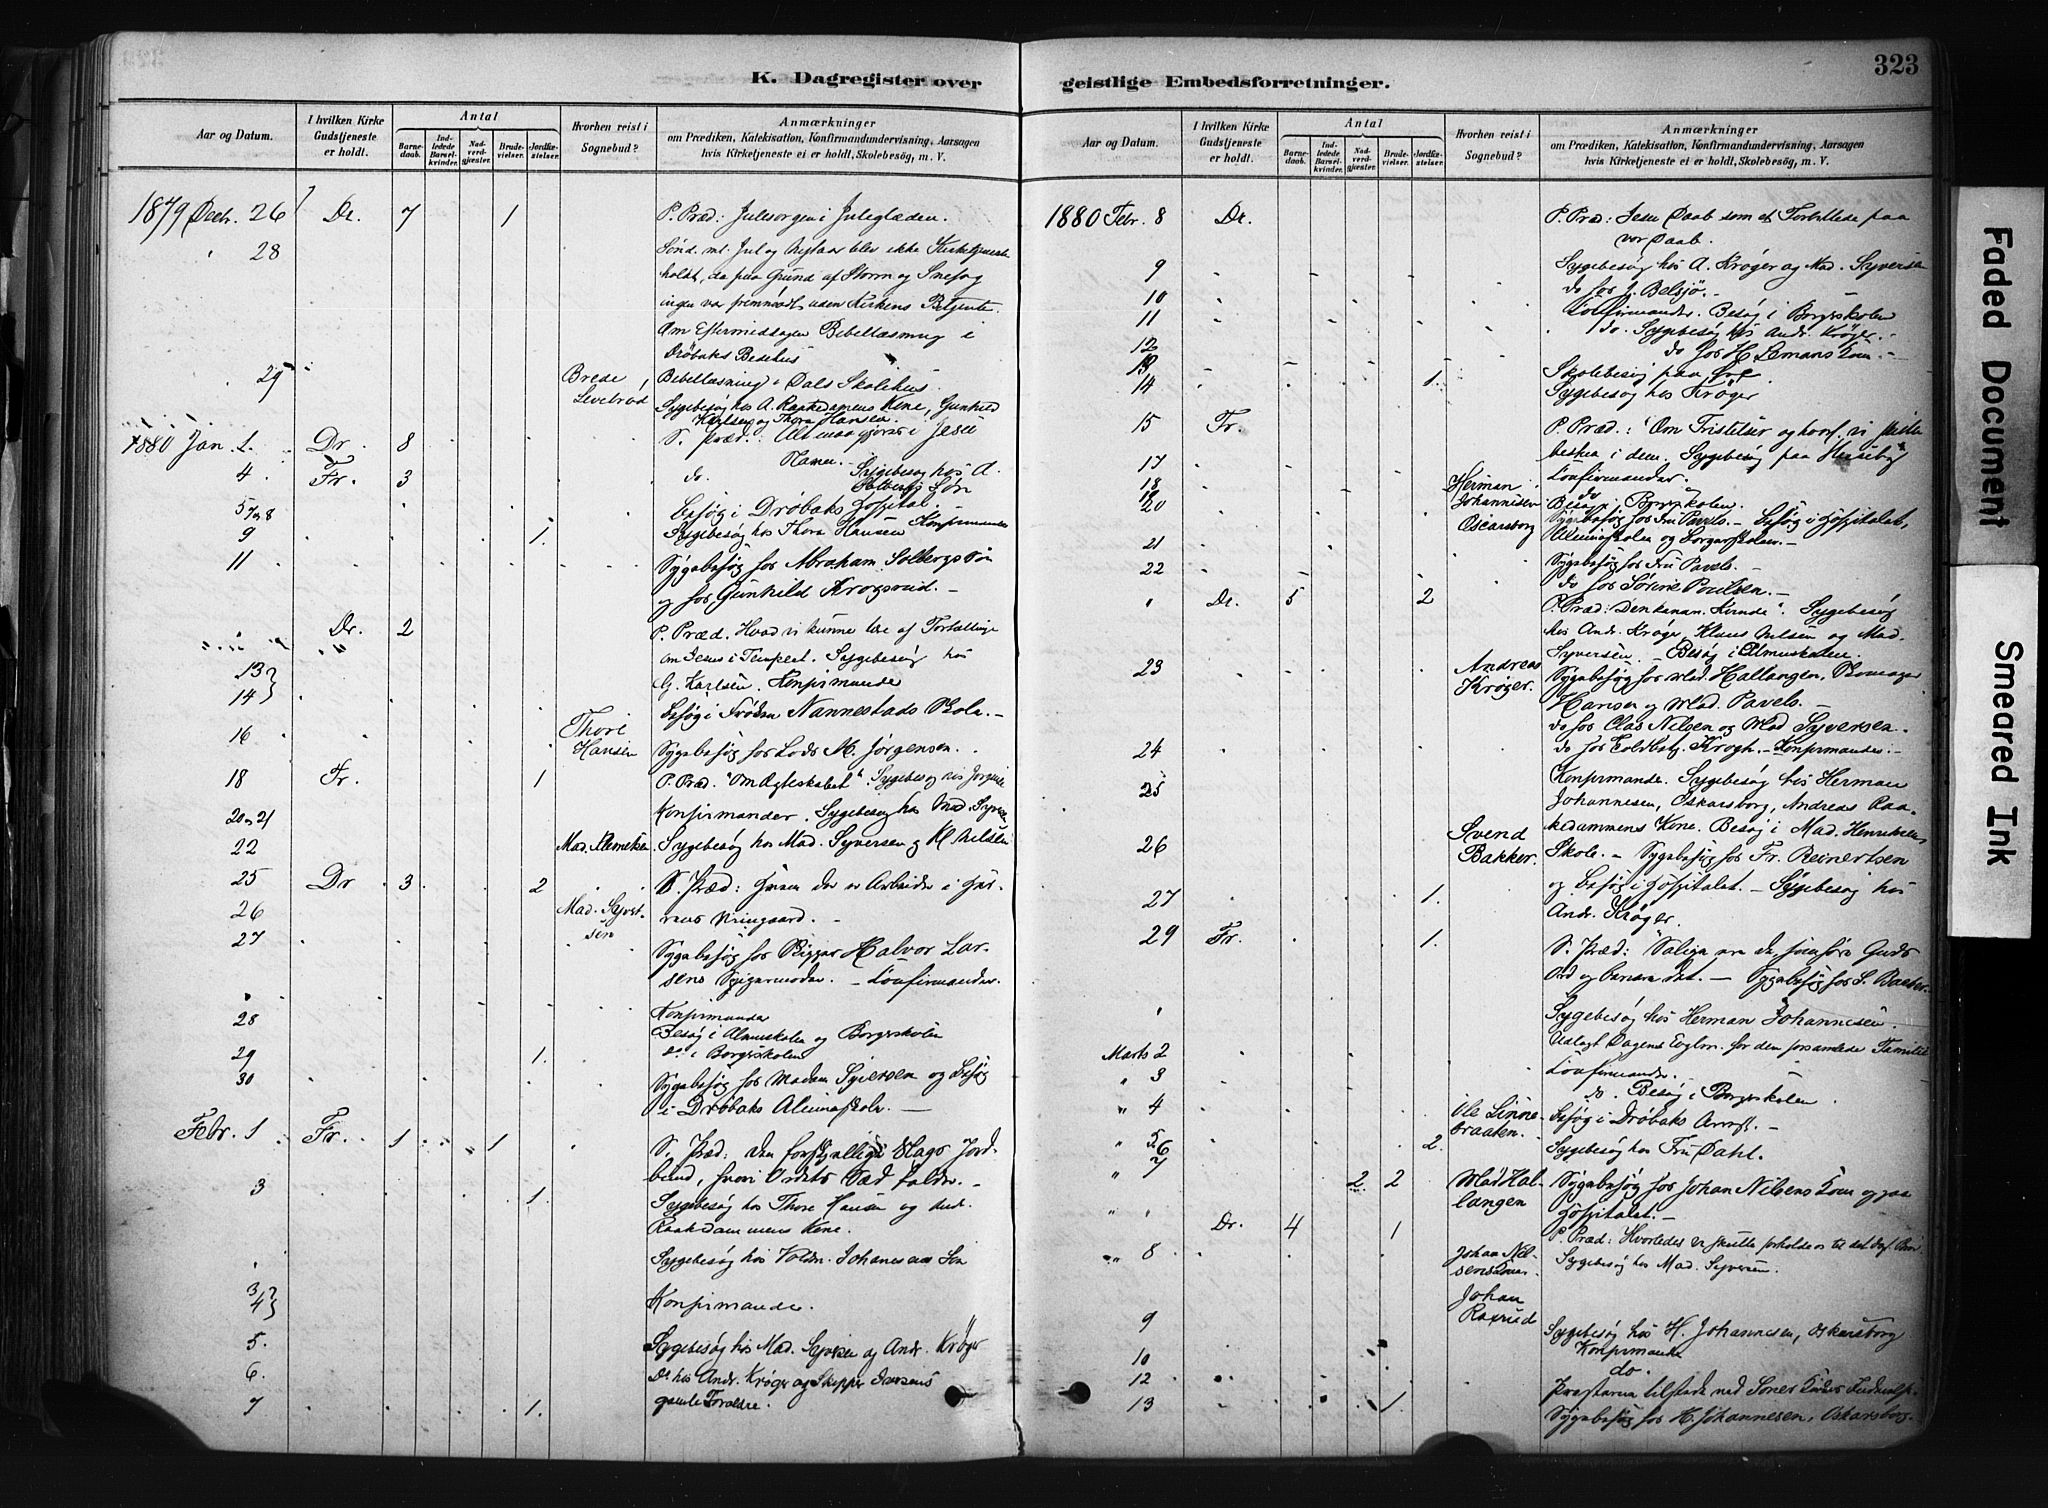 K. Dagregister over
geistlige Embedsforretninger.
323
Aar og Datum.
I hvilken Kirke Gudstjeneste er holdt.
Antal
Barnedaab.
Indledede Barselkvinder.
Nadverdgjæster.
Brudevielser.
Jordfæstelser.
Hvorhen reist i Sognebud?
Anmærkninger
om Prædiken, Katekisation, Konfirmandundervisning, Aarsagen
hvis Kirketjeneste ei er holdt, Skolebesøg, m. V.
1879 Decbr. 26 Dr. 7 1 P. Præd: Julesorgen i Juleglæden.
28 Sønd. ml. Jul og Nytaar blev ikke Kirketjeneste
holdt, da paa Grund af Storm og Snefog
ingen var fremmødt uden Kirkens Betjente.
Om Eftermiddagen Bibellæsning i
Drøbaks Bedehus
29 Brede Levebrød Bibellæsning i Dals Skolehus.
Sygebesøg hos A. Raakedamens Kone, Gunhild
Karlsen og Thora Hansen
1880 Jan. 1. Dr. 8 S. Præd.: Alt maa gjøres i Jesu
Navn.
4 Fr. 3 do. Sygebesøg hos A.
Solbergs Søn
5, 7 og 8 Besøg i Drøbaks Hospital.
9 1. Sygebesøg hos Thora Hansen Konfirmander
11 Sygebesøg hos Abraham Solbergs Søn
og hos Gunhild Krogsrud.
Dr. 2 P. Præd. Hvad vi kunne lære af Fortællingen
om Jesus i Templet. Sygebesøg hos
G. Karlsen. Konfirmander
13
14 Besøg i Frøken Nannestads Skole.
16 Thore Hansen Sygebesøg hos Lods M. Jørgensen.
18 Fr. 1 P. Præd. "Om Ægteskabet". Sygebesøg hos
20 og 21 Konfirmander. Sygebesøg hos Mad. Syversen
22 Mad. Klemetsen. Sygebesøg hos Mad. Syversen og K Nilsen
25 Dr 3 2 S. Præd: Hvem der er Arbeider i Herrens
Viingaard.
26 Mad. Syversen
27 Sygebesøg hos Halvor Larsens
Svigermoder. Konfirmander.
28 Konfirmander
Besøg i Almuskolen og Borgerskolen
29 1. do. i Borgerskolen
30 Sygebesøg hos Madam Syversen og Besøg
i Drøbaks Almuskole.
Febr. 1 Fr. 1 1 S. Præd: Den forskjellige Slags Jordbund,
hvori Ordets Sæd falder.
3 1. Sygebesøg hos Thore Hansen og And.
Raakedammens Kone.
Sygebesøg hos
3
4 Konfirmander.
5. Sygebesøg hos Mad. Syversen og Andr. Krøger
6. Do. hos Andr. Krøger og Skipper Iversens
7 1. gamle Forældre.
Aar og Datum.
I hvilken Kirke Gudstjeneste er holdt.
Antal
Barnedaab.
Indledede Barselkvinder.
Nadverdgjæster.
Brudevielser.
Jordfæstelser.
Hvorhen reist i Sognebud?
Anmærkninger
om Prædiken, Katekisation, Konfirmandundervisning, Aarsagen
hvis Kirketjeneste ei er holdt, Skolebesøg, m. V.
1880 Febr. 8 Dr. P. Præd: Jesu Daab som et Forbillede paa
vor Daab.
9 Sygebesøg hos A. Krøger og Mad. Syversen
10 do hos J. Belsjø.
11 Konfirmander. Besøg i Borgerskolen
12 do. Sygebesøg hos Andr. Krøger.
13 do hos H. Lemans Kone.
14 1. Skolebesøg paa
Sygebesøg hos Krøger
15 Fr. P. Præd: "Om Fristelser og hvorl. vi
bestaa i dem. Sygebesøg paa
17 Konfirmander.
18 Herman Johannesen Oscarsborg do
19
20 Besøg i Borgerskolen.
Sygebesøg hos Fru Pavels. Besøg i Hospitalet,
Almuskolen og Borgerskolen.
21 Sygebesøg hos Fru Pavels.
22 do hos Sørine Poulsen.
" Dr. 5 2 P. Præd: Den kanan. Kvinde". Sygebesøg
hos Andr. Krøger, Klaus Nilsen og Mad.
Syversen. Besøg i Almuskolen.
23 Andreas Krøger. Sygebesøg hos Mad. Hallangen, Skomager
Hansen og Mad. Pavels.
do hos Clas Nilsen og Mad Syversen.
24 do hos Toldbetj. Krogh. Konfirmander.
25 Konfirmander. Sygebesøg hos Herman
Johannesen, Oskarsborg, Andreas Raakedammens
Kone. Besøg i Mad. Henriksens
26 Svend Bakker. Skole. Sygebesøg hos Fr. Reinertsen
og Besøg i Hospitalet. Sygebesøg hos
27 1. Andr. Krøger.
29 Fr. 1. S. Præd: "Salige ere de, som høre Guds
Ord og bevare det. Sygebesøg hos S. Bakker.
" Sygebesøg hos Herman Johannesen.
Udlagt Dagens Evglm. for den forsamlede Familie
Marts 2 Konfirmander.
" 3 do. Besøg i Borgerskolen
" 4 Ole Linnebraaten. Besøg i Drøbaks Arrest.
" 5
6 2. Sygebesøg hos Fru Dahl.
" 7 2 2 Mad Hallangen Sygebesøg hos Johan Nilsens Kone og paa
Hospitalet.
" " Dr. 4 1 P. Præd: Hvorledes vi skulle forholde os til det
" 8 Johan Nilsens Kone. Sygebesøg hos Mad. Syversen.
Johan
9 Sygebesøg hos H. Johannesen, Oskarsborg
10 Konfirmander
12 do.
13 1 Præsterne tilstede ved
Sygebesøg hos H. Johannesen, Oskarsborg.
Faded Document
Smeared Ink